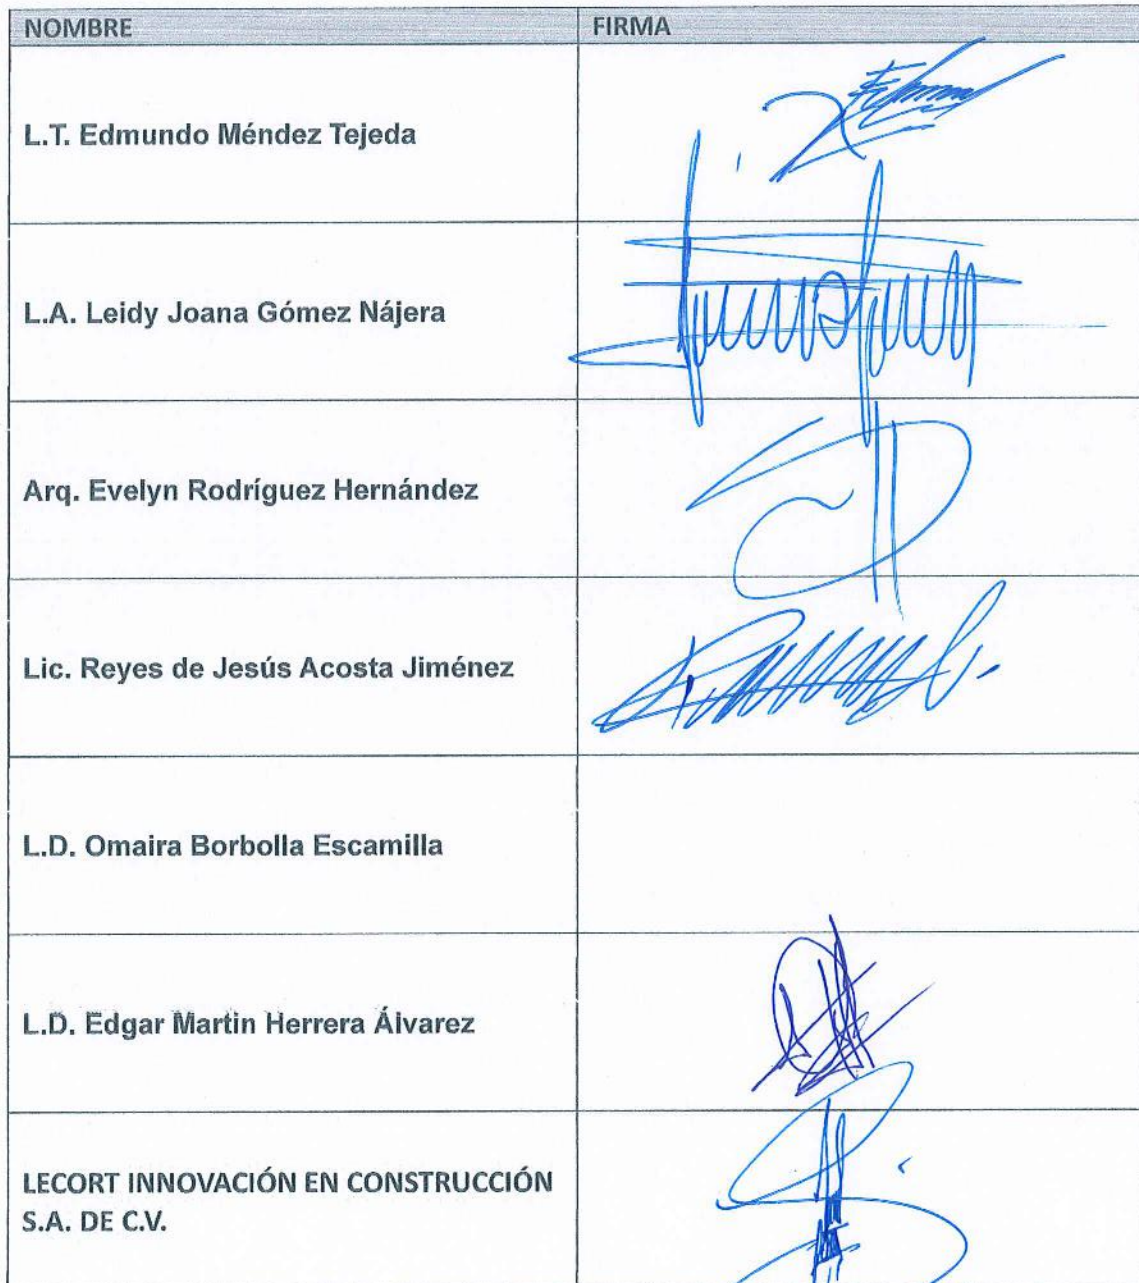 NOMBRE FIRMA
L.T. Edmundo Méndez Tejeda
L.A. Leidy Joana Gómez Nájera
Arq. Evelyn Rodríguez Hernández
Lic. Reyes de Jesús Acosta Jiménez
L.D. Omaira Borbolla Escamilla
L.D. Edgar Martin Herrera Álvarez
LECORT INNOVACIÓN EN CONSTRUCCIÓN
S.A. DE C.V.